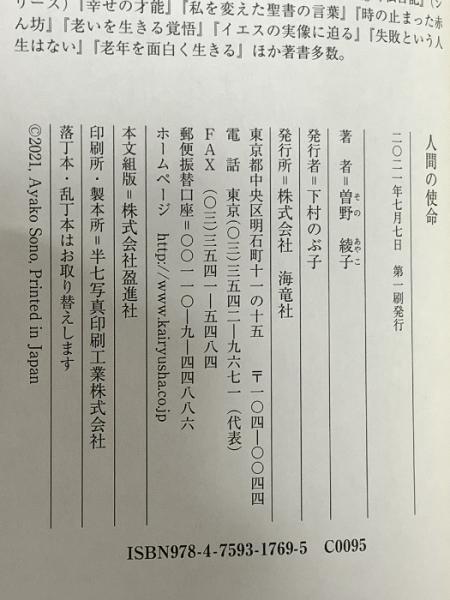 リーズ）『幸せの才能』『私を変えた聖書の言葉』『時の止まった赤
ん坊』『老いを生きる覚悟』『イエスの実像に迫る』『失敗という人
生はない』『老年を面白く生きる』ほか著書多数。
人間の使命
二〇二一年七月七日　第一刷発行
著　者＝曽野　綾子
その　あやこ
発行者＝下村のぶ子
発行所＝株式会社　海竜社
東京都中央区明石町十一の十五　〒一〇四―〇〇四四
電　話　東京（〇三）三五四二―九六七一（代表）
ＦＡＸ　（〇三）三五四一―五四八四
郵便振替口座＝〇〇一一〇―九―四四八八六
ホームページ　http://www.kairyusha.co.jp
本文組版＝株式会社盈進社
印刷所・製本所＝半七写真印刷工業株式会社
落丁本・乱丁本はお取り替えします
©2021, Ayako Sono, Printed in Japan
ISBN978-4-7593-1769-5　C0095